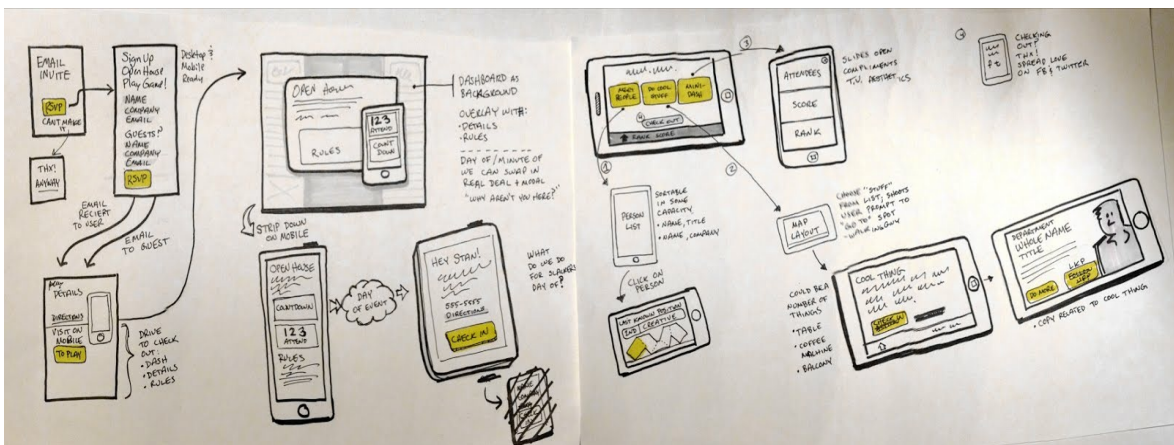 EMAIL
INVITE
RSVP
CAN'T MAKE
IT,
THX!
ANYWAY
Sign Up
Open House
Play Game!
NAME
COMPANY
EMAIL
GUESTS?
NAME
COMPANY
EMAIL
RSVP
Desktop &
Mobile
Ready
EMAIL
RECIEPT
TO USER
EMAIL
TO GUEST
DETAILS
DIRECTIONS
VISIT ON
MOBILE
TO PLAY
DRIVE
TO CHECK
OUT:
• DASH
• DETAILS
• RULES
OPEN HOUSE
RULES
123
ATTEND
COUNT
DOWN
DASHBOARD AS
BACKGROUND
OVERLAY WITH:
• DETAILS
• RULES
DAY OF/MINUTE OF
WE CAN SWAP IN
REAL DEAL + MODAL
"WHY AREN'T YOU HERE?"
STRIP DOWN
ON MOBILE
OPEN HOUSE
COUNTDOWN
123
ATTEND
RULES
DAY
OF EVENT
HEY STAN!
555-5555
DIRECTIONS
CHECK IN
WHAT
DO WE DO
FOR SLACKERS
DAY OF?
MEET
PEOPLE
DO COOL
STUFF
MINI-
DASH
CHECK OUT
RANK SCORE
1
2
3
4
ATTENDEES
SCORE
RANK
SLIDES OPEN
COMPLIMENTS
T.V. AESTHETICS
CHECKING
OUT?
THX!
SPREAD LOVE
ON FB & TWITTER
PERSON
LIST
SORTABLE
IN SOME
CAPACITY
• NAME, TITLE
• NAME, COMPANY
CLICK ON
PERSON
LAST KNOWN POSITION
2ND | CREATIVE
MAP
LAYOUT
CHOOSE "STUFF"
FROM LIST, SHOOTS
USER PROMPT TO
"GO TO" SPOT
• WALKING GUY
COULD BE A
NUMBER OF
THINGS
• TABLE
• COFFEE
MACHINE
• BALCONY
COOL THING
CHECK IN
DEPARTMENT
WHOLE NAME
TITLE
DO MORE
LKP
• COPY RELATED TO COOL THING